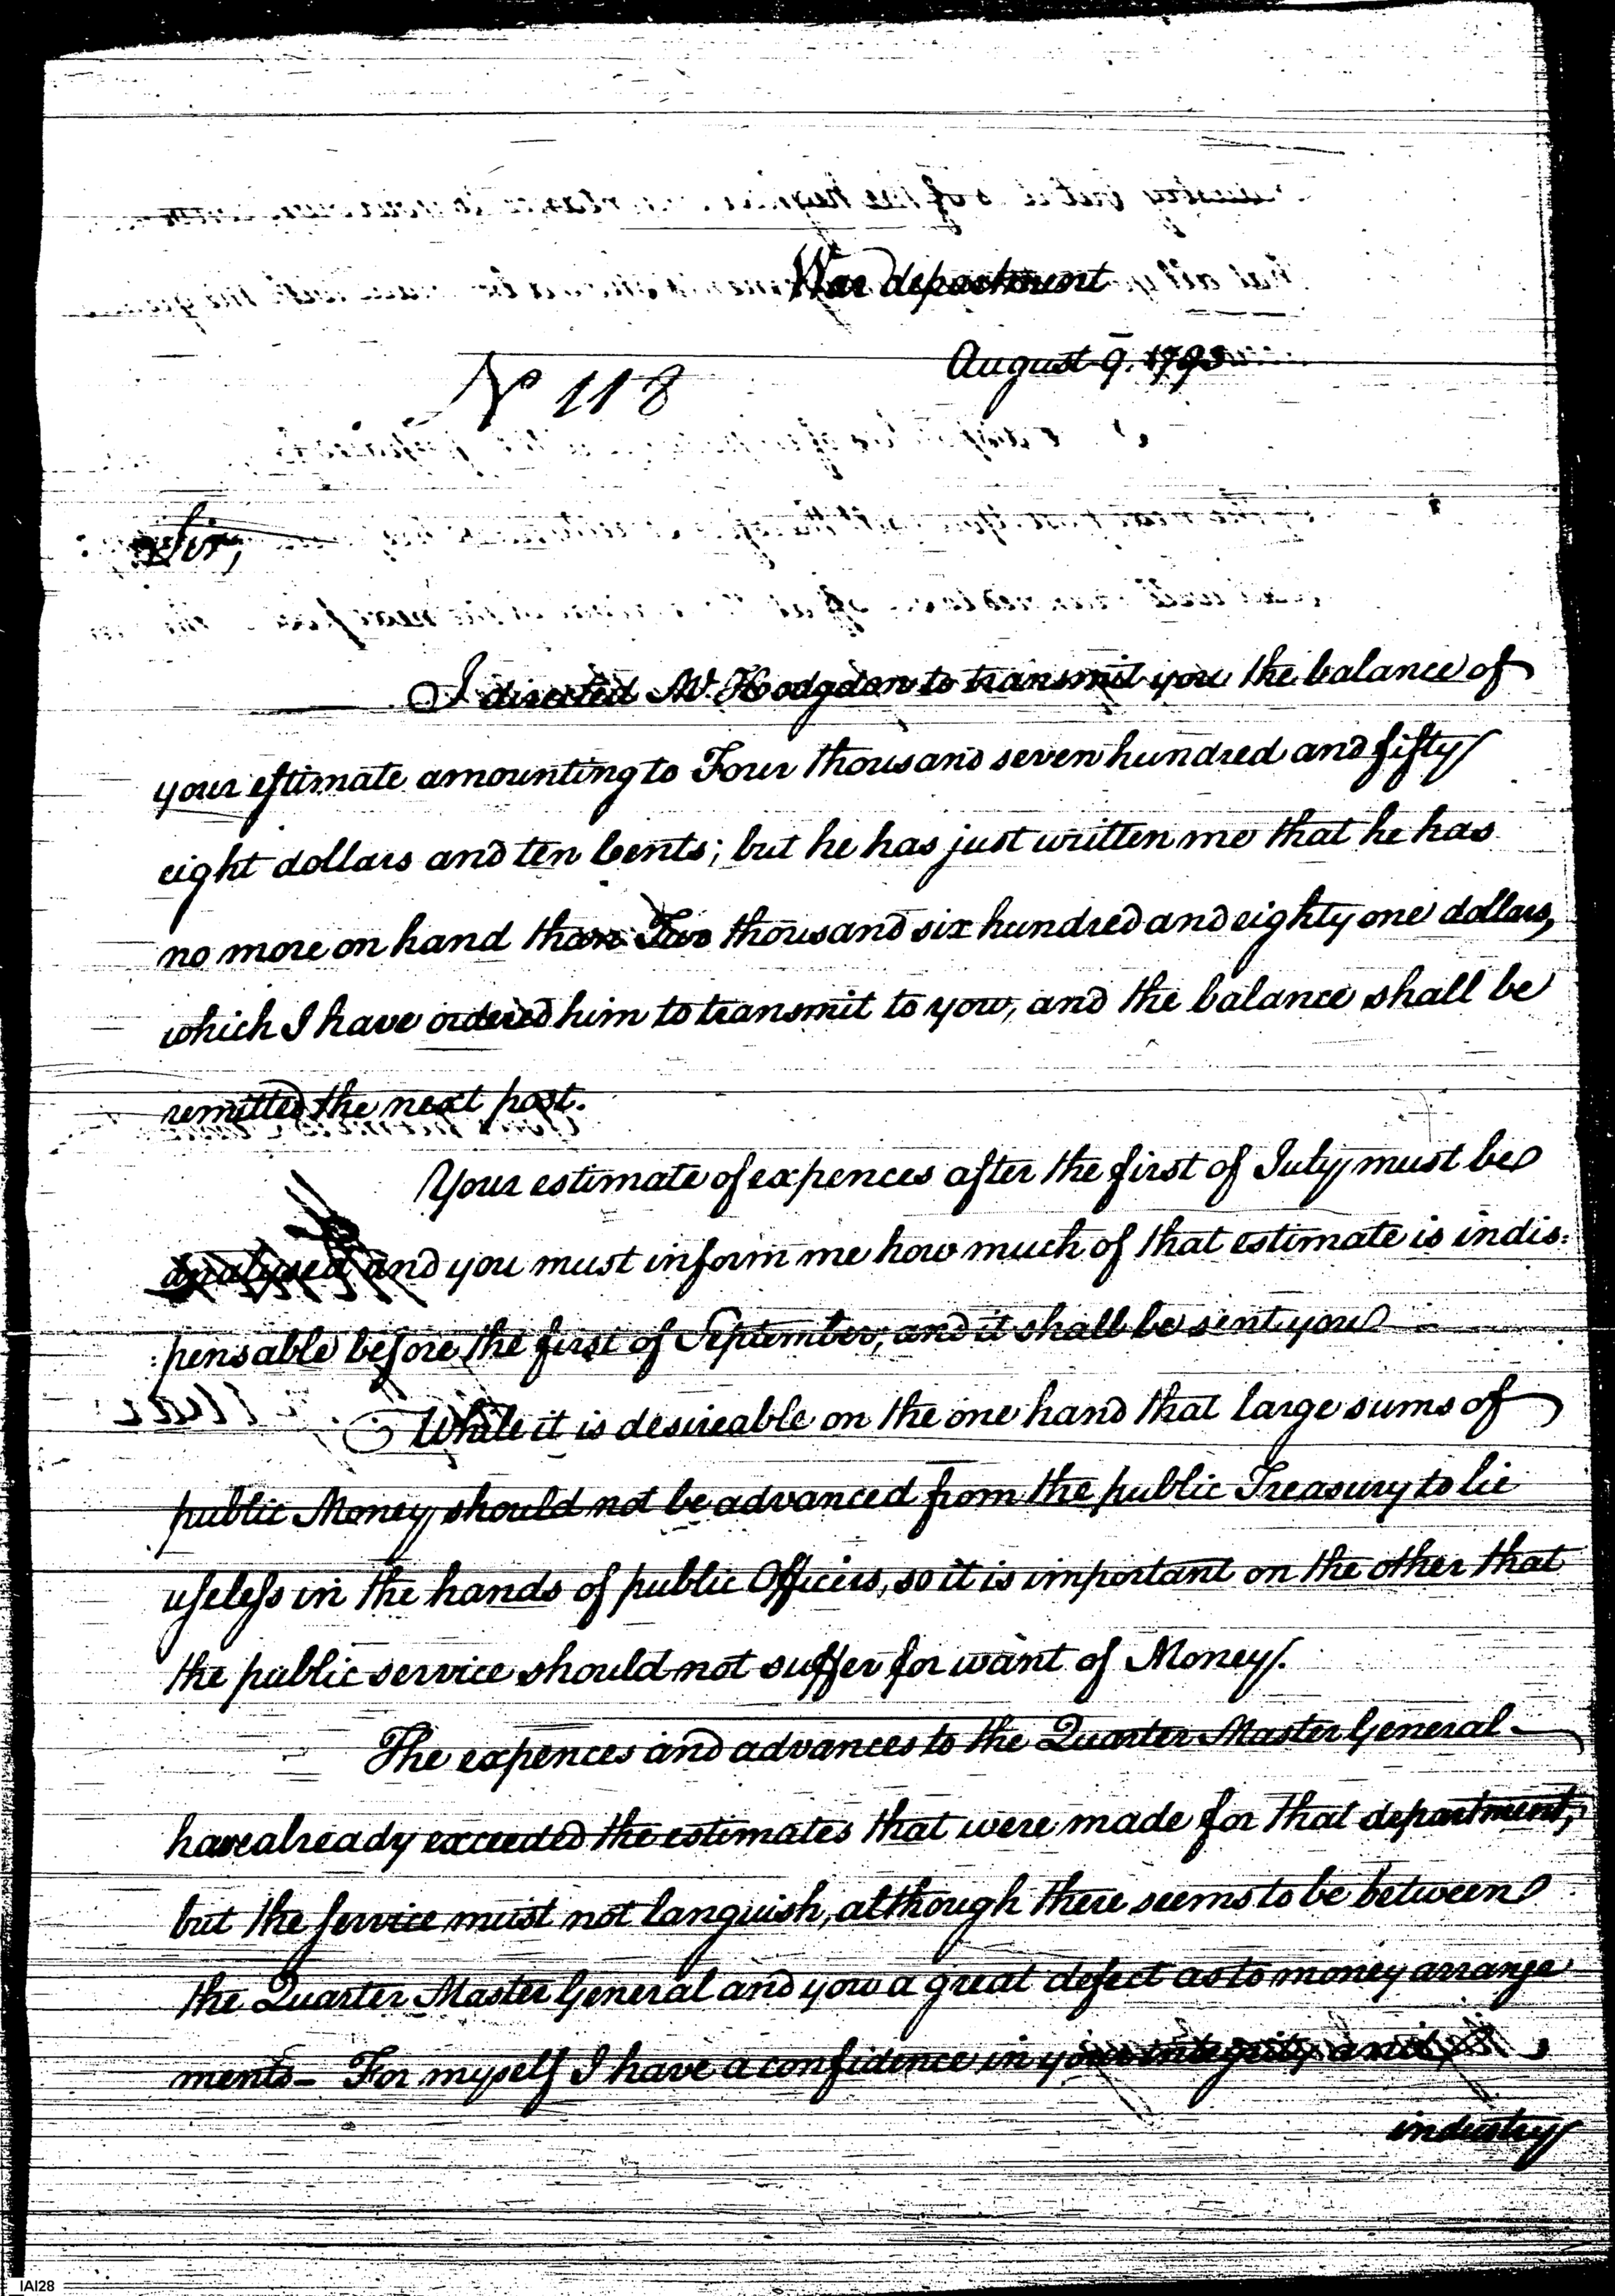 War department
August 9. 1793
No 118
Sir,
I directed Mr. Hodgdon to transmit you the balance of
your estimate amounting to Four thousand seven hundred and fifty
eight dollars and ten Cents; but he has just written me that he has
no more on hand than Two thousand six hundred and eighty one dollars,
which I have ordered him to transmit to you, and the balance shall be
remitted the next post.
Your estimate of expences after the first of July must be
analysed and you must inform me how much of that estimate is indis:
:pensable before the first of September, and it shall be sent you
While it is desireable on the one hand that large sums of
public Money should not be advanced from the public Treasury to lie
useless in the hands of public Officers, so it is important on the other that
the public service should not suffer for want of Money.
The expences and advances to the Quarter Master General
have already exceeded the estimates that were made for that department,
but the service must not languish, although there seems to be between
the Quarter Master General and you a great defect as to money arrange
ments - For myself I have a confidence in your integrity and
industry
IAI28